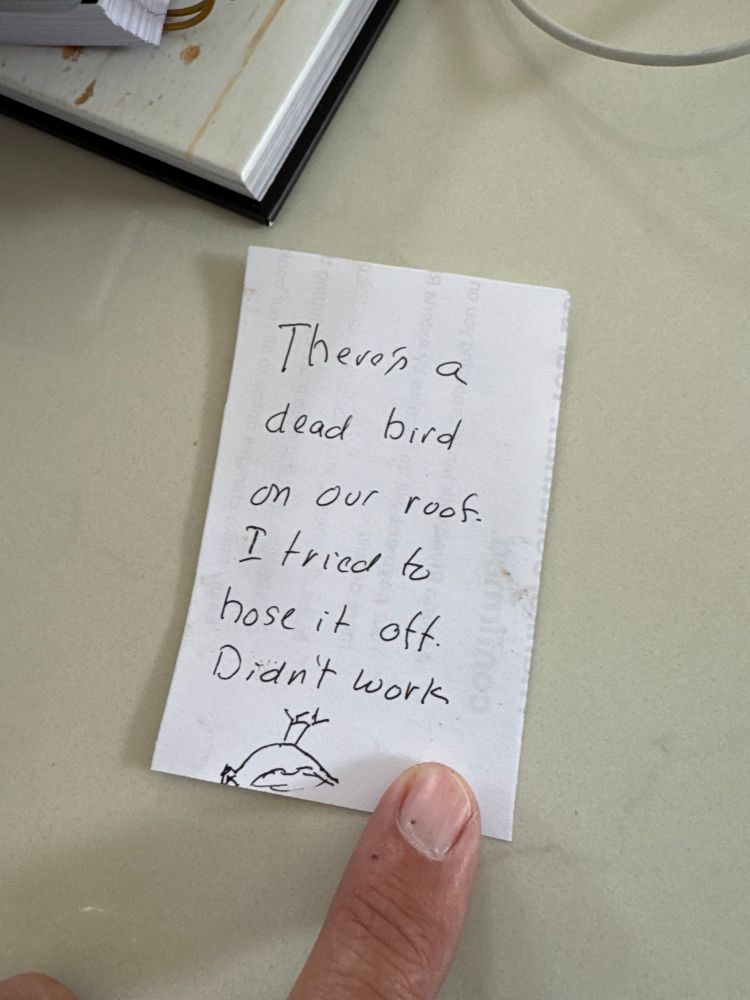 There's a
dead bird
on our roof.
I tried to
hose it off.
Didn't work